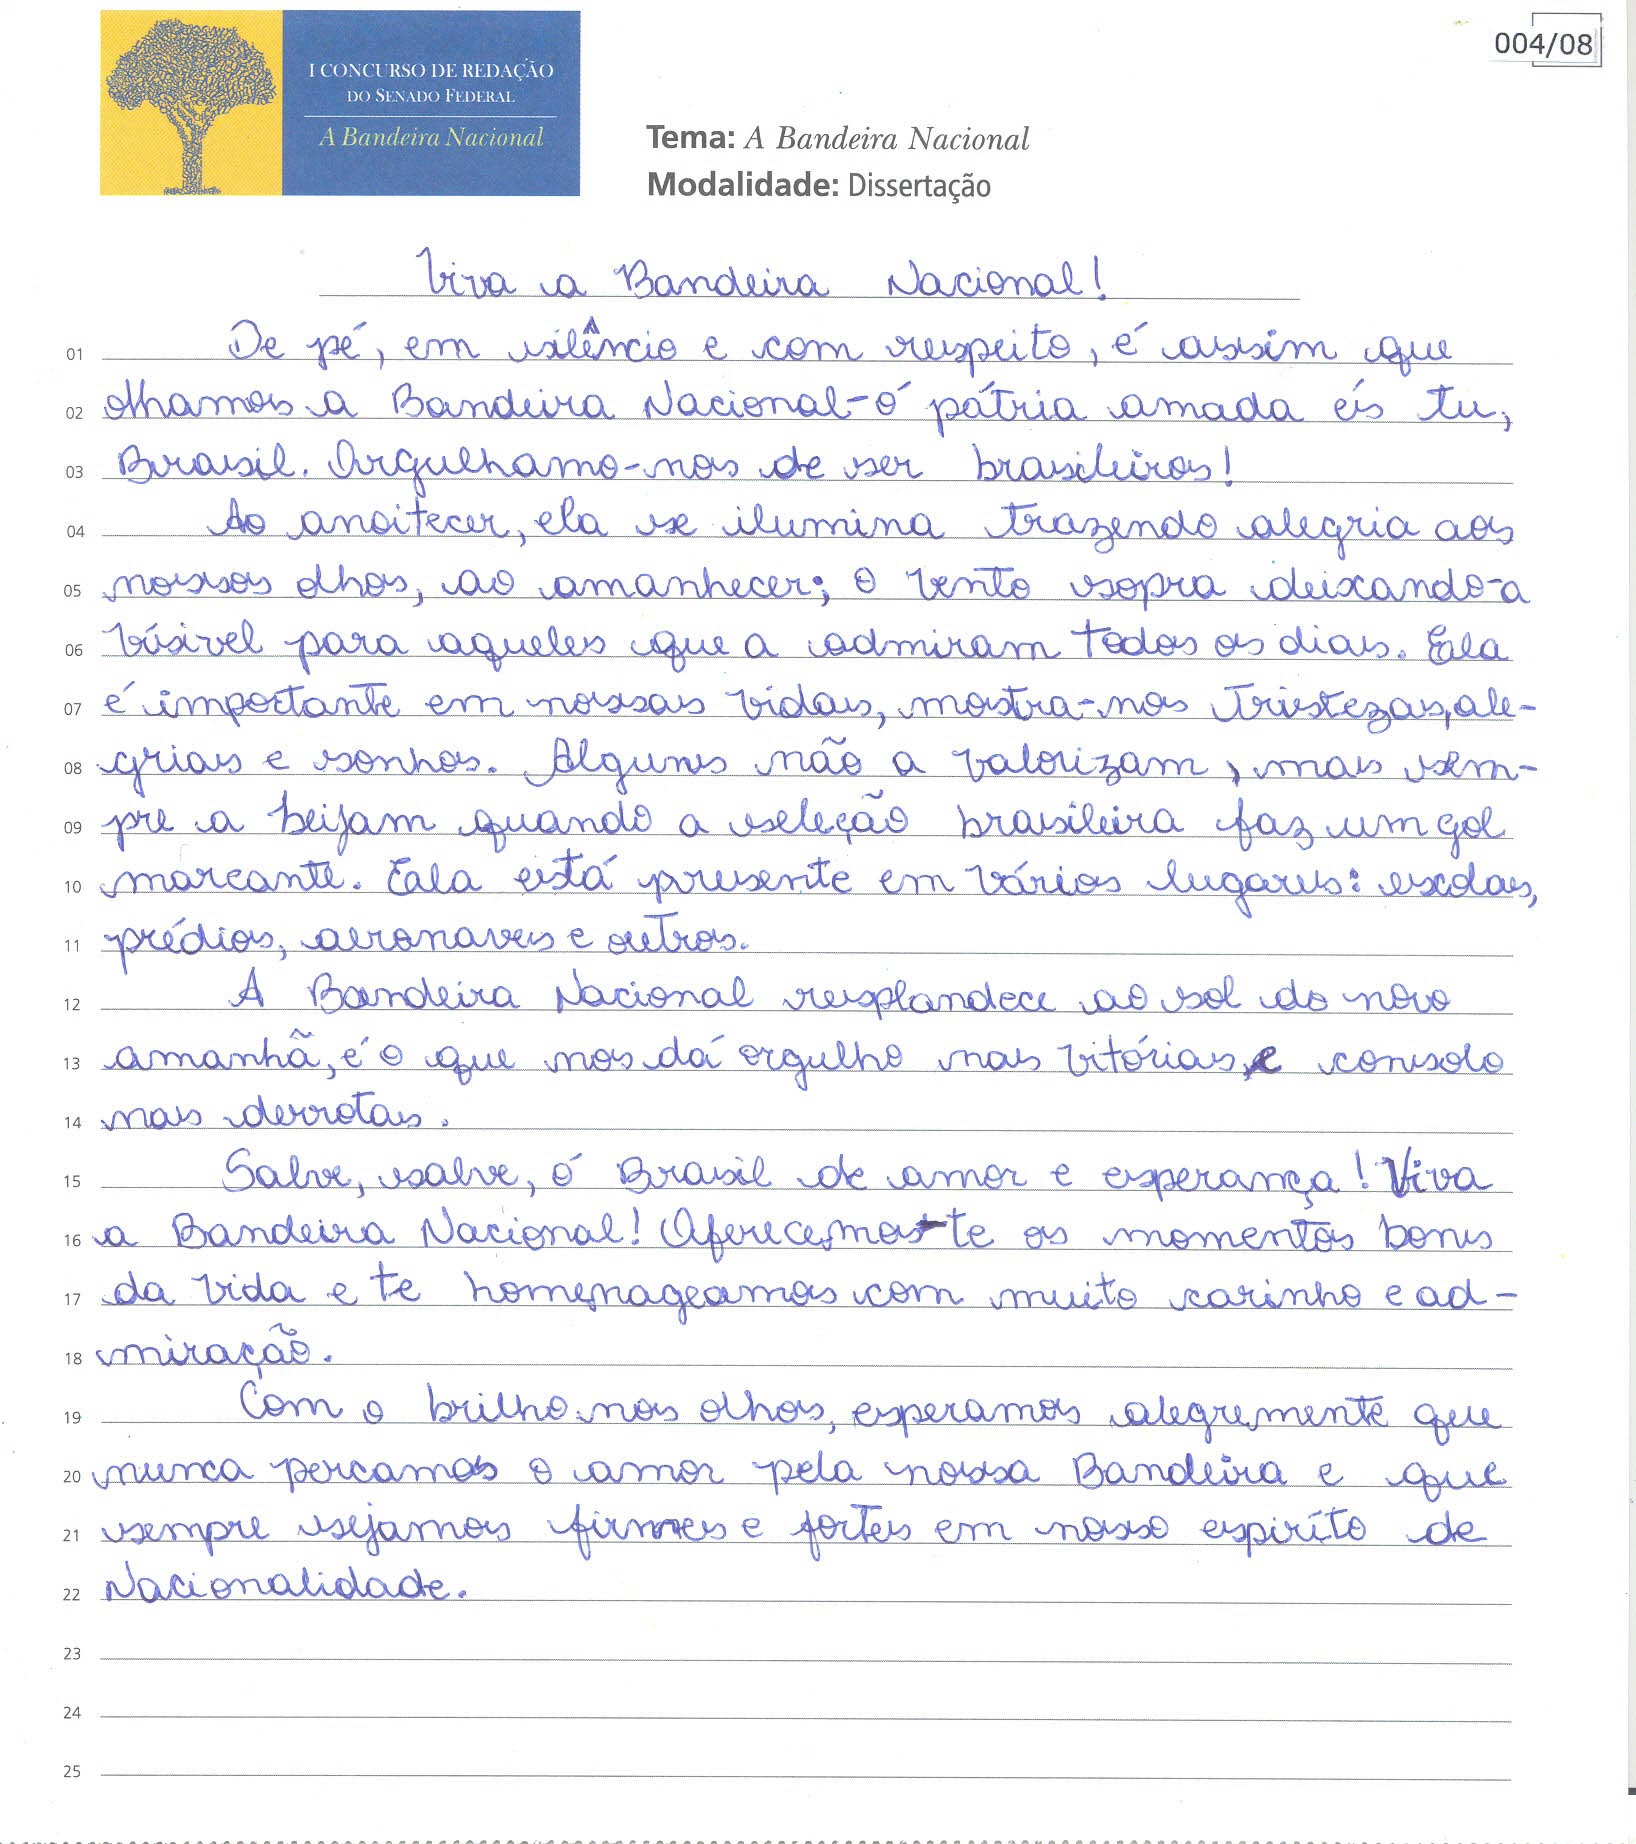 004/08
I CONCURSO DE REDAÇÃO
DO SENADO FEDERAL
A Bandeira Nacional
Tema: A Bandeira Nacional
Modalidade: Dissertação
Viva a Bandeira Nacional!
01 De pé, em silêncio e com respeito, é assim que
02 olhamos a Bandeira Nacional-ó pátria amada és tu,
03 Brasil. Orgulhamo-nos de ser brasileiros!
04 Ao anoitecer, ela se ilumina trazendo alegria aos
05 nossos olhos, ao amanhecer; o vento sopra deixando-a
06 vísivel para aqueles que a admiram todos os dias. Ela
07 é importante em nossas vidas, mostra-nos tristezas, ale-
08 grias e sonhos. Alguns não a valorizam, mas sem-
09 pre a beijam quando a seleção brasileira faz um gol
10 marcante. Ela está presente em vários lugares: escolas,
11 prédios, aeronaves e outros.
12 A Bandeira Nacional resplandece ao sol do novo
13 amanhã, é o que nos dá orgulho nas vitórias, e consolo
14 nas derrotas.
15 Salve, salve, ó Brasil de amor e esperança! Viva
16 a Bandeira Nacional! Oferecemos-te os momentos bons
17 da vida e te homenageamos com muito carinho e ad-
18 miração.
19 Com o brilho nos olhos, esperamos alegremente que
20 nunca percamos o amor pela nossa Bandeira e que
21 sempre sejamos firmes e fortes em nosso espiríto de
22 Nacionalidade.
23
24
25